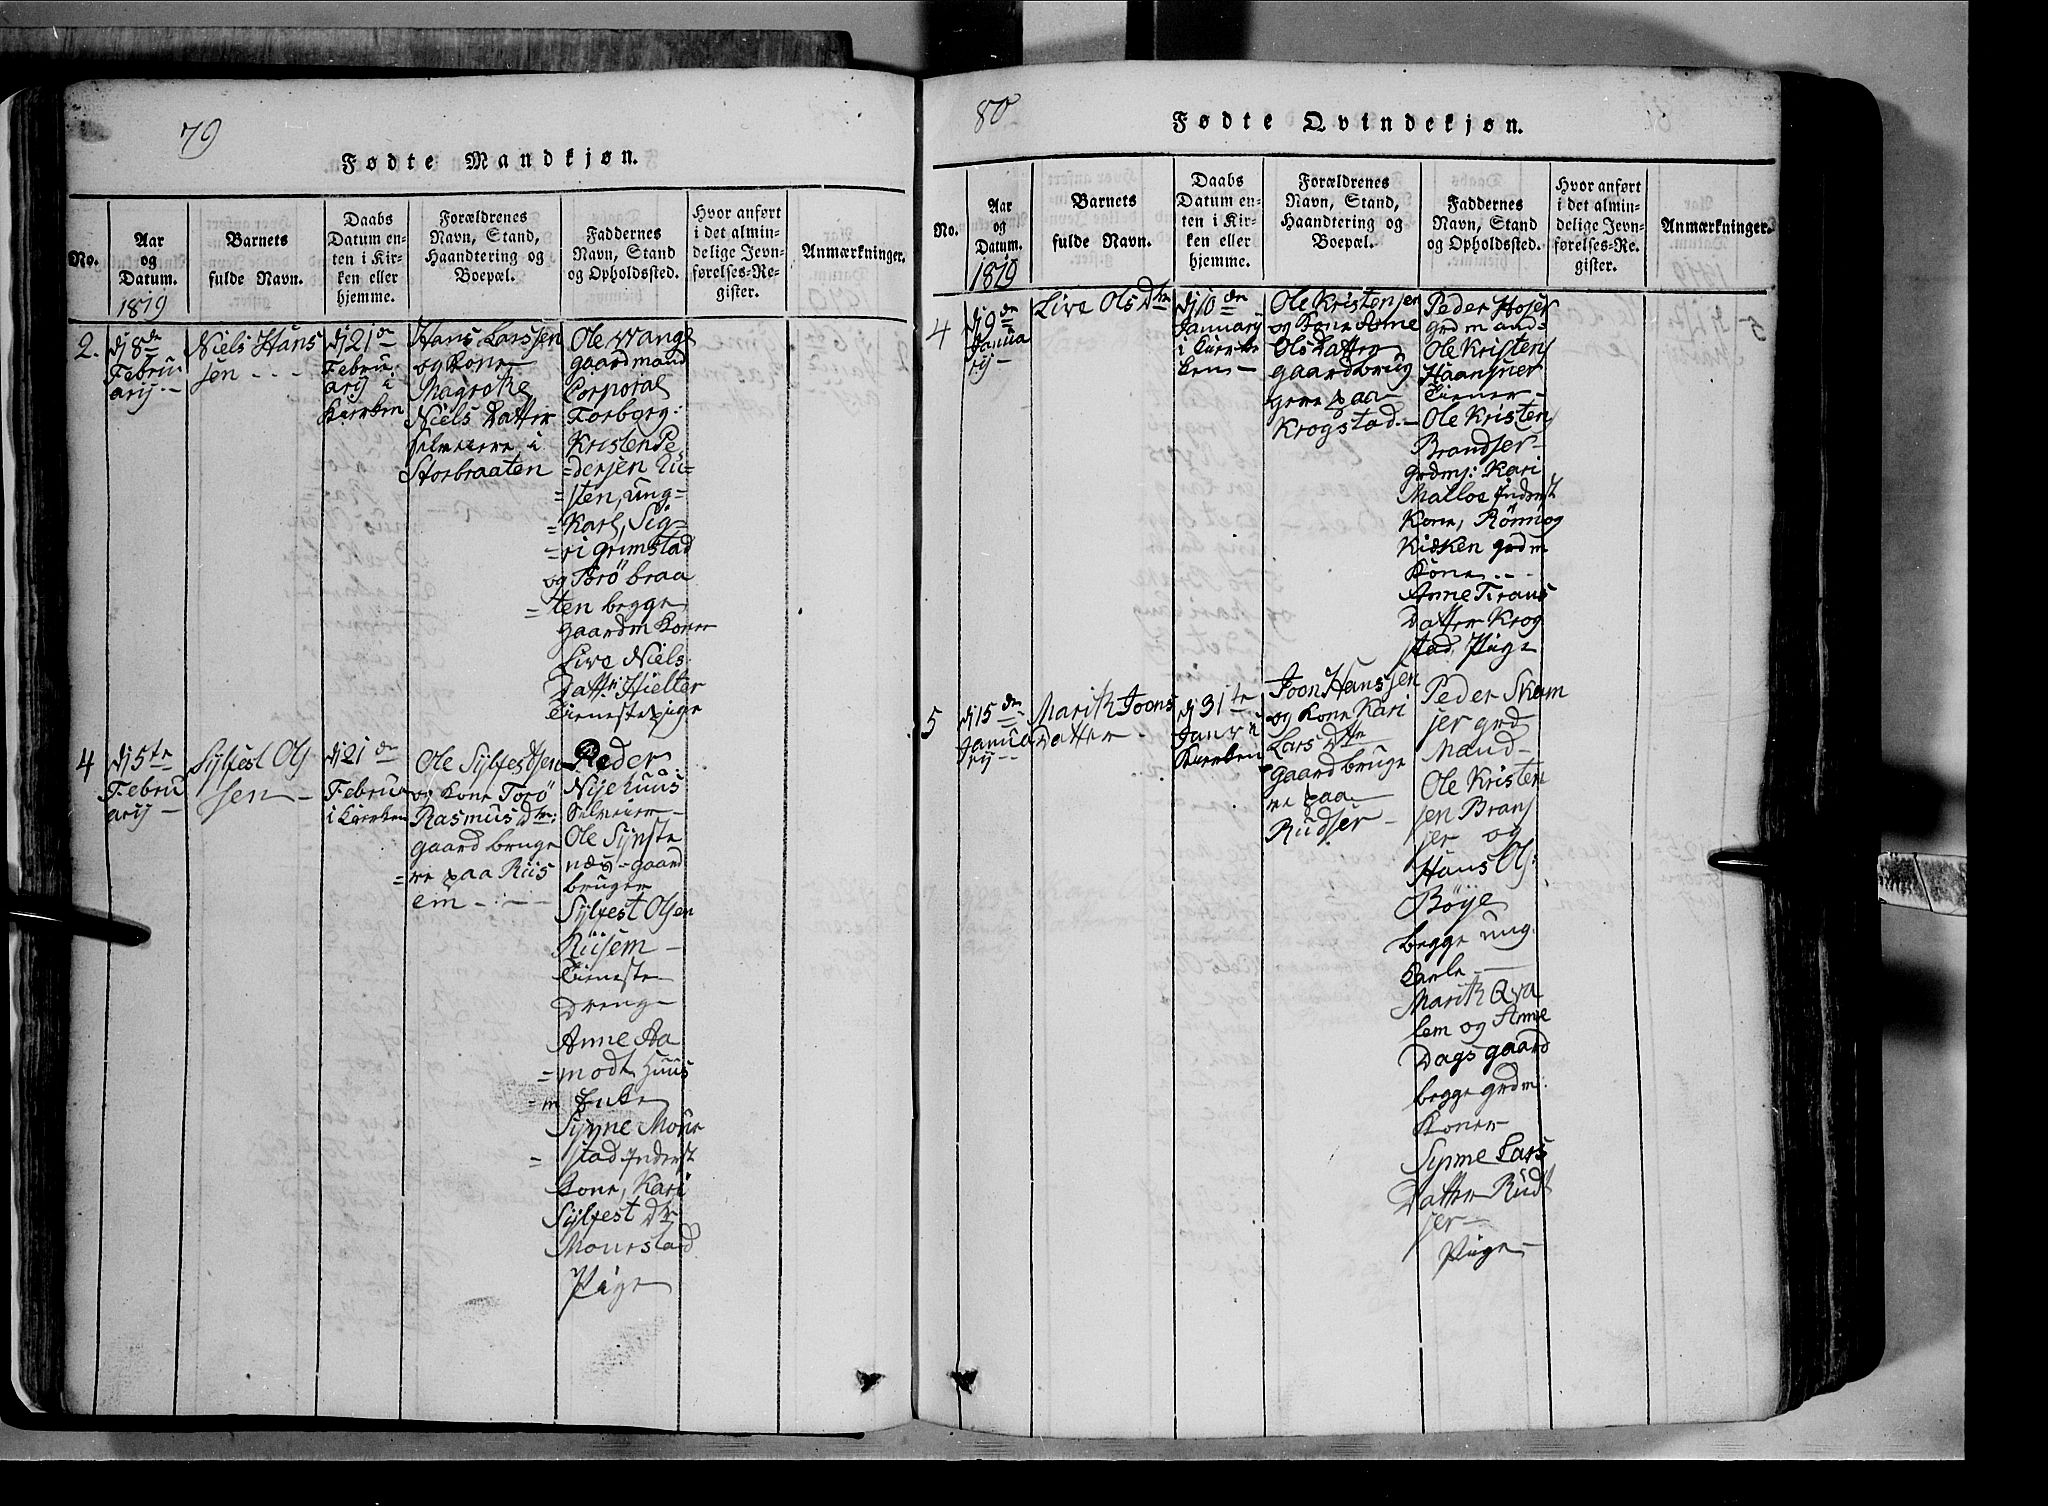 79
Fødte Mandkjøn.
No.
Aar
og
Datum.
1819
Barnets
fulde Navn.
Daabs
Datum en-
ten i Kir-
ken eller
hjemme.
Forældrenes
Navn, Stand,
Haandtering og
Boepæl.
Faddernes
Navn, Stand
og Opholdssted.
Hvor anført
i det almin-
delige Jevn-
førelses-Re-
gister.
Anmærkninger.
2.
dj 8de
Febru-
arij -
Niels Hans
sen - - -
dj 21de
Febru-
arij i
Kierken
Hans Larssen
og Kone
Magrethe
Niels Datter
selveiere i
Storbraaten
Ole Vange
gaardmand
Corporal
Forborg:
Kristen Pe
=dersen Lu=
=sten, ung=
=Karl, Sig=
=ri grimstad
og Torö braa
=ten begge
gaardm Koner
Live Niels
Dattr: Hielter
Tienestepige
4
dj 5te
Febru
arij -
Sylfest Ols
sen -
dj 21de
Febru
i Kierken
Ole Sylfestsen
og Kone Torö
Rasmus Dtr:
gaard bruge
=re paa Riis
em - - -
Peder
Nijehuus
Selveier -
Ole Synste
næs - gaard
bruger
Sylfest Olsen
Riisem -
Tieneste
Dreng -
Anne Aa
=modt Huus
=m Enke
Synne Mone
=stad Inderst
Kone, Kari
Sylfest Dtr
Monestad
Pige
80
Fødte Qvindekjøn.
No.
Aar
og
Datum.
1819
Barnets
fulde Navn.
Daabs
Datum en-
ten i Kir-
ken eller
hjemme.
Forældrenes
Navn, Stand,
Haandtering og
Boepæl.
Faddernes
Navn, Stand
og Opholdssted.
Hvor anført
i det almin-
delige Jevn-
førelses-Re-
gister.
Anmærkninger.
4
dj 9de
Janua
rij -
Live Ols Dtr
dj 10de
Januarij
i Kierke
ken -
Ole Kristensen
og Kone Anne
Ols Datter
gaardbrug
gere paa
Krogstad. -
Peder
grdmand:
Ole Kristens
Haansner
Tiener -
Ole Kristens
Brandser -
grdmj: Kari
Malloe Inderst
Kone, Rönnog
Kisken grdm
Kone - -
Anne
Datter Krog
stad, Pige
5
dj 15de
Janua
rij -
Marith Joons
Datter -
dj 31te
Jan: i
Kierken
Joon Hanssen
og Kone Kari
Lars Dtr
gaardbruge
re paa
Rudser -
Peder Skam
ser grd
Mand -
Ole Kristen
sen Brans
ser og
Hans Ols:
Böye
begge ung
Karle -
Marith Qva
lem og Anne
Dagsgaard
begge grdm:
Koner
Synne Lars
Datter Rud
ser -
Pige -